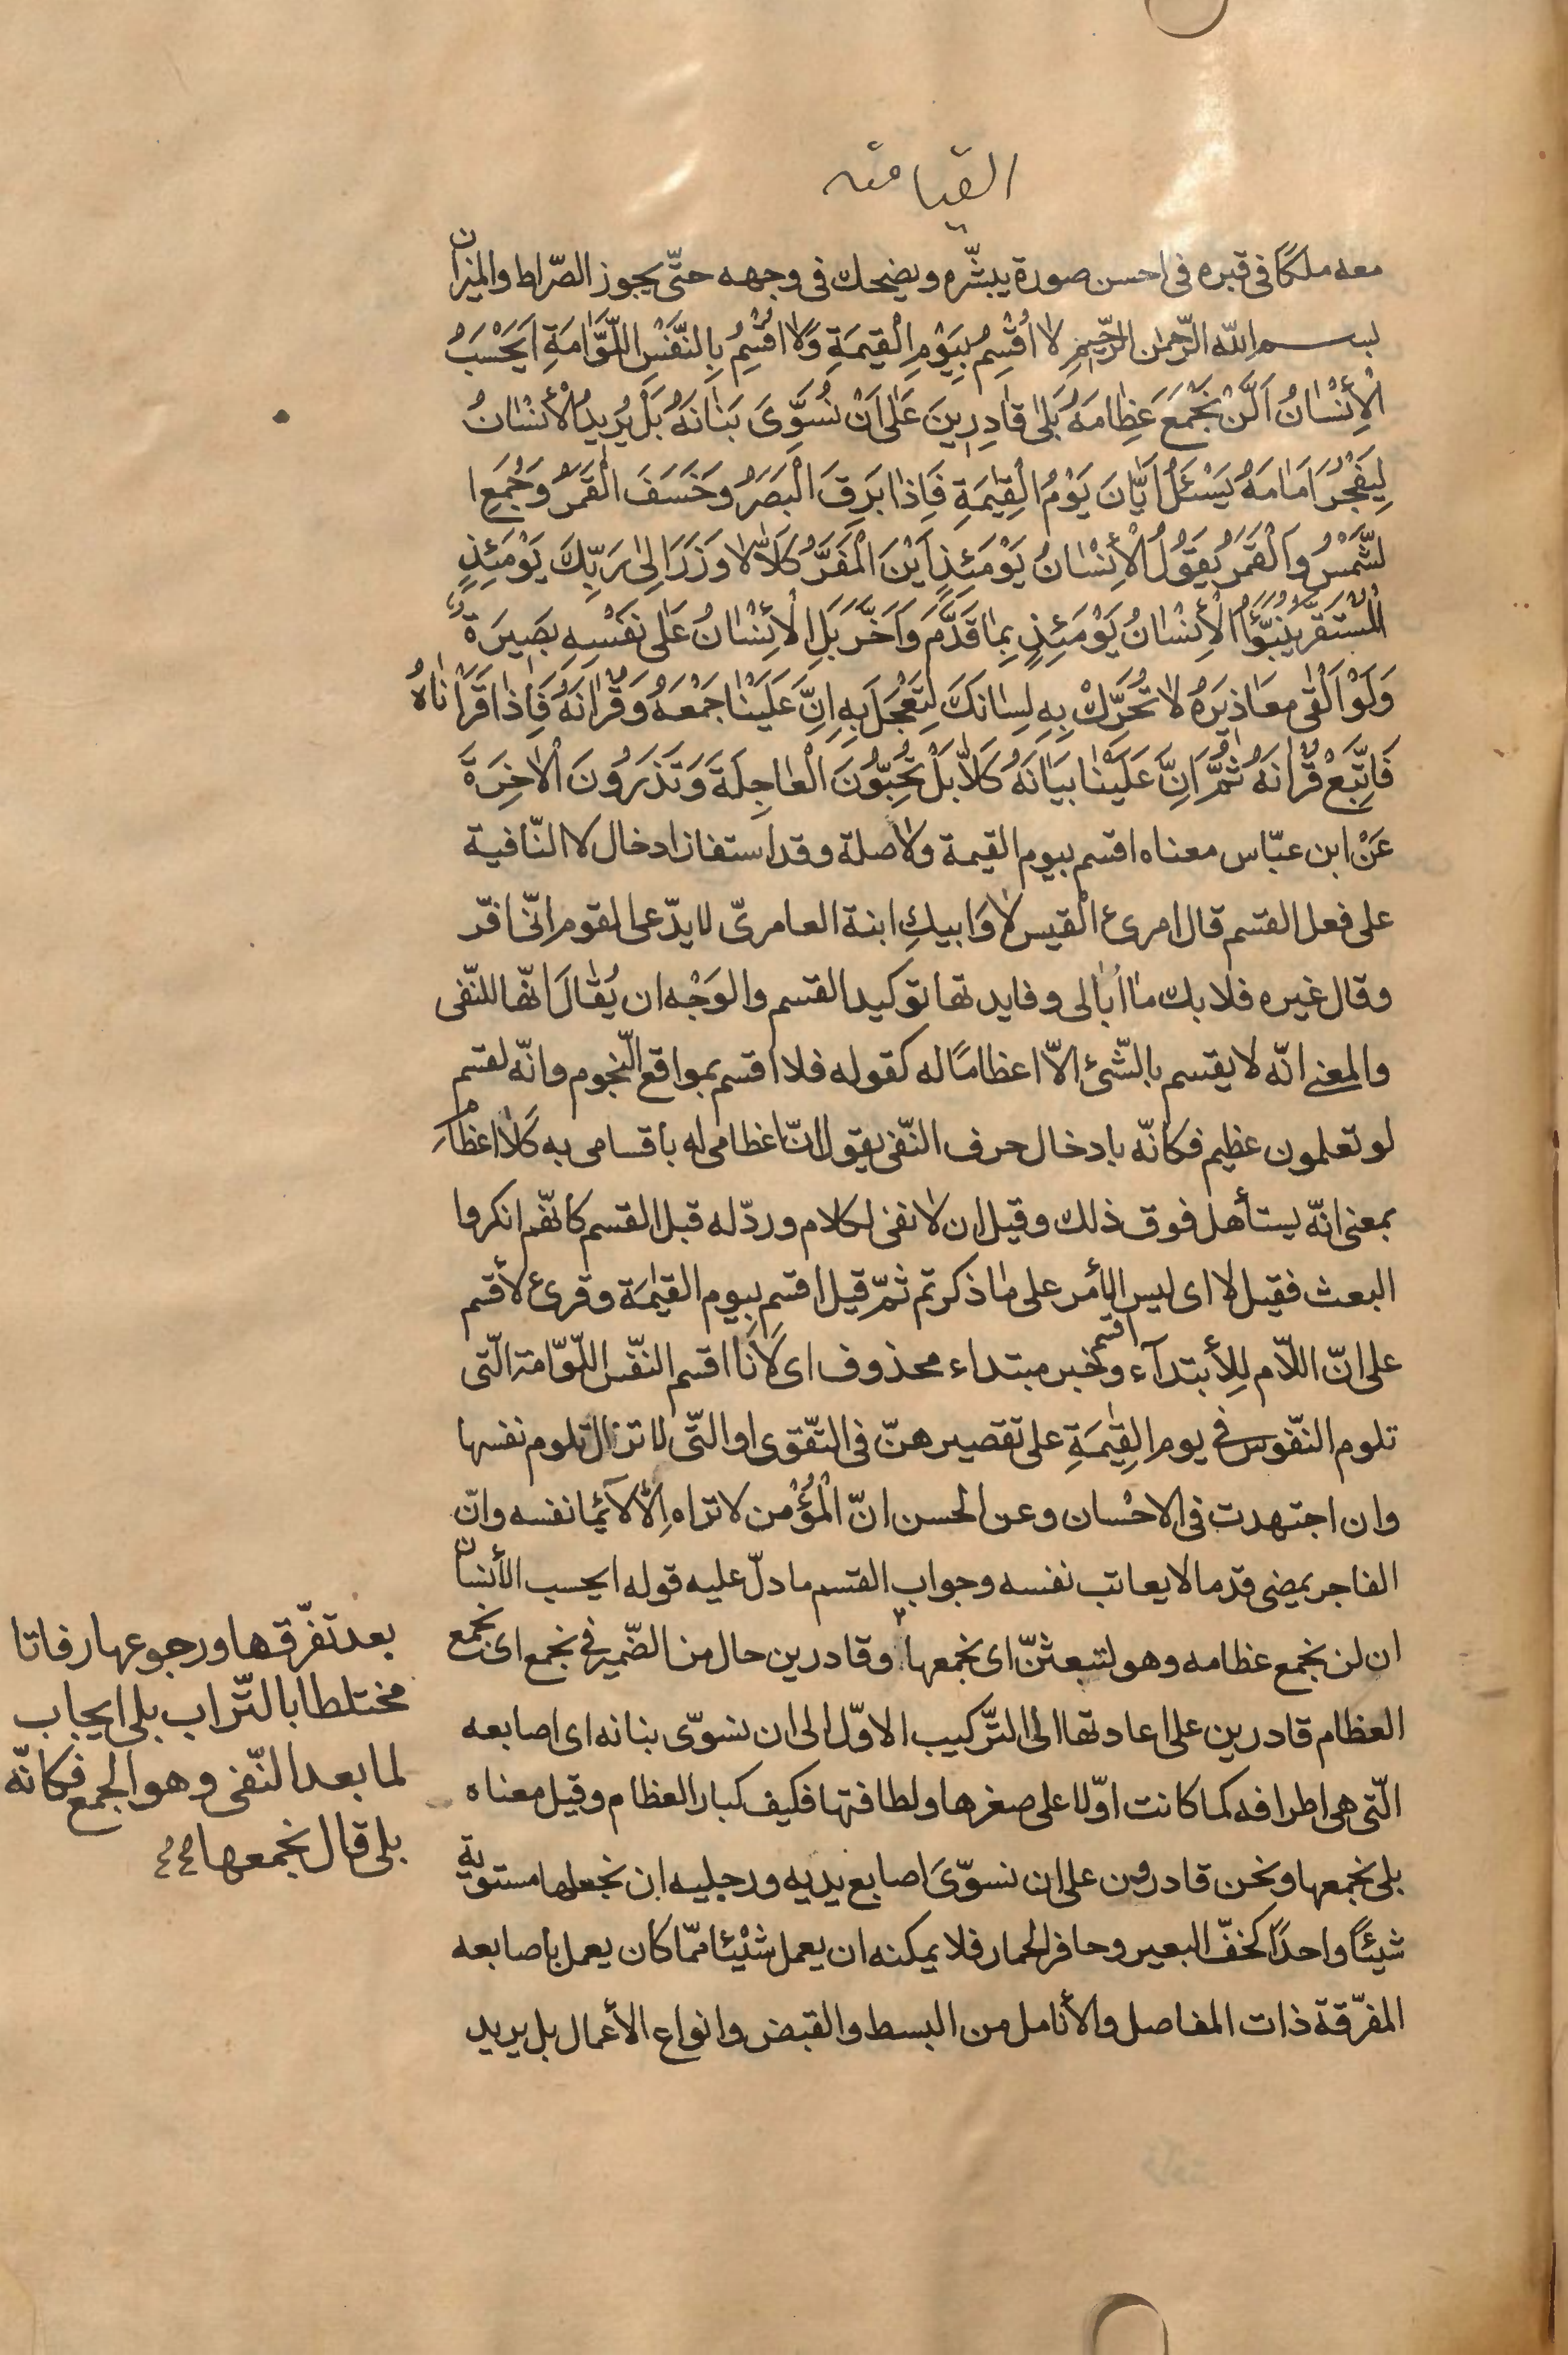 القيامته
معه ملكًا فى قبره فى احسن صورة يبشّره ويضحك فى وجهه حتّى يجوز الصّراط والميزان
بسم الله الرّحمن الرّحيمِ لا اُقْسِمُ بِيَوْمِ الْقِيمَةِ وَلا اُقْسِمُ بِالنَّفْسِ اللَّوّامَةِ اَيَحْسَبُ
الْأِنْسٰانُ اَلَّنْ نَجْمَعَ عَظِامَهُ بَلىٰ قٰادِرِينَ عَلىٰ اَنْ نُسَوِّىَ بَنٰانَهُ بَلْ يُرِيدُ الْأنْسٰانُ
لِيَفْجُرَ اَمٰامَهُ يَسْئَلُ اَيّٰانَ يَوْمُ الْقِيٰمَةِ فَاِذٰا بَرِقَ الْبَصَرُ وخَسَفَ الْقَمَرُ وَجُمِعَ ا
لشَّمْسُ وَالْقَمَرُ يَقُولُ الْأِنْسٰانُ يَوْمَئِذٍ اَيْنَ الْمَفَرُّ كَلاّٰ لا وَزَرَ اِلىٰ رَبِّكَ يَوْمَئِذٍ
الْمُسْتَقَرُّ يُنَبَّؤُا الْأِنْسٰانُ يَوْمَئِذٍ بِمٰا قَدَّمَ وَاَخَّرَ بَلِ الْأِنْسٰانُ عَلىٰ نَفْسِهِ بَصِيرَةٌ
وَلَوْ اَلْقٰى مَعٰاذِيرَهُ لا تُحَرِّكْ بِهِ لِسٰانَكَ لِتَعْجَلَ بِهِ اِنَّ عَلَيْنٰا جَمْعَهُ وَقُرْانَهُ فَاِذٰا قَرَأْنٰاهُ
فَاتَّبِعْ قُرْانَهُ ثُمَّ اِنَّ عَلَيْنٰا بَيٰانَهُ كَلاّٰ بَلْ تُحِبُّونَ الْعٰاجِلَةَ وَتَذَرُونَ الْاٰخِرَةَ
عَنْ ابن عبّاس معناه اقسم بيوم القيمة ولا صلة وقد استفاز ادخال لا النّافية
على فعل القسم قال امرئ القيس لا وَابيكِ ابنة العامرىّ لا يدّعى القوم انّى افرّ
وقال غيره فلا بك مٰا اُبٰالى وفايدتها توكيد القسم والوَجْه ان يُقٰالَ انّها للنّفى
والمعنى انّه لا يقسم بالشّئ الاّ اعظامًا له كقوله فلا اقسم بمواقع النّجوم وانّه لقسم
لو تعلمون عظيم فكانّه بادخال حرف النّفى يقول انّ اعظامى له باقسامى به كَلا اعظام
بمعنى انّه يستأهل فوق ذلك وقيل ان لا نفى لكلام وردّ له قبل القسم كانّهم انكروا
البعث فقيل لا اى ليس الأمر على مٰا ذكرتم ثمّ قيل اقسم بِيوم القيٰمَة وقرئ لأقسم
على انّ اللّام لِلأبتدآء واقسم خبر مبتداء محذوف اى لَأنا اقسم النّفس اللّوّامة الّتى
تلوم النّفوس فى يوم القِيٰمَةِ على تقصيرهنّ فى التّقوى او الّتى لا تزال تلوم نفسها
وان اجتهدت فى الاحْسان وعن الحسن انّ الْمُؤْمن لا تراه اِلّا لائما نفسه وانّ
الفاجر يمضى قدما لا يعاتب نفسه وجواب القسم ما دلّ عليه قوله ايحسب الأنسان
ان لن نجمع عظامه وهو لتبعثنّ اى نجمعها ٢ وقادرين حال من الضّمير فى نجمع اى نجمع
العظام قادرين على اعادتها الى التّركيب الاوّل الى ان نسوّى بنانه اى اصابعه
الّتى هى اطرافه كما كانت اوّلا على صغرها ولطافتها فكيف كبار العظام وقيل معناه
بلى نجمعها ونحن قادرون على ان نسوّىَ اصابع يديه ورجليه ان نجعلها مستوية
شيئًا واحدًا كخفّ البعير وحافر الحمار فلا يمكنه ان يعمل شيْئا ممّا كان يعمل باصابعه
المفرّقة ذات المفاصل والأنامل من البسط والقبض وانواع الأعمال بل يريد
بعد تفرّقها ورجوعها رفاتا
مختلطا بالتّراب بلى ايجاب
لما بعد النّفى وهو الجمع فكانّه
بلى قال نجمعها